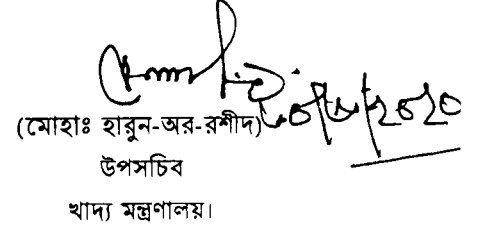 (মোহাঃ হারুন-অর-রশীদ)
উপসচিব
খাদ্য মন্ত্রণালয়।